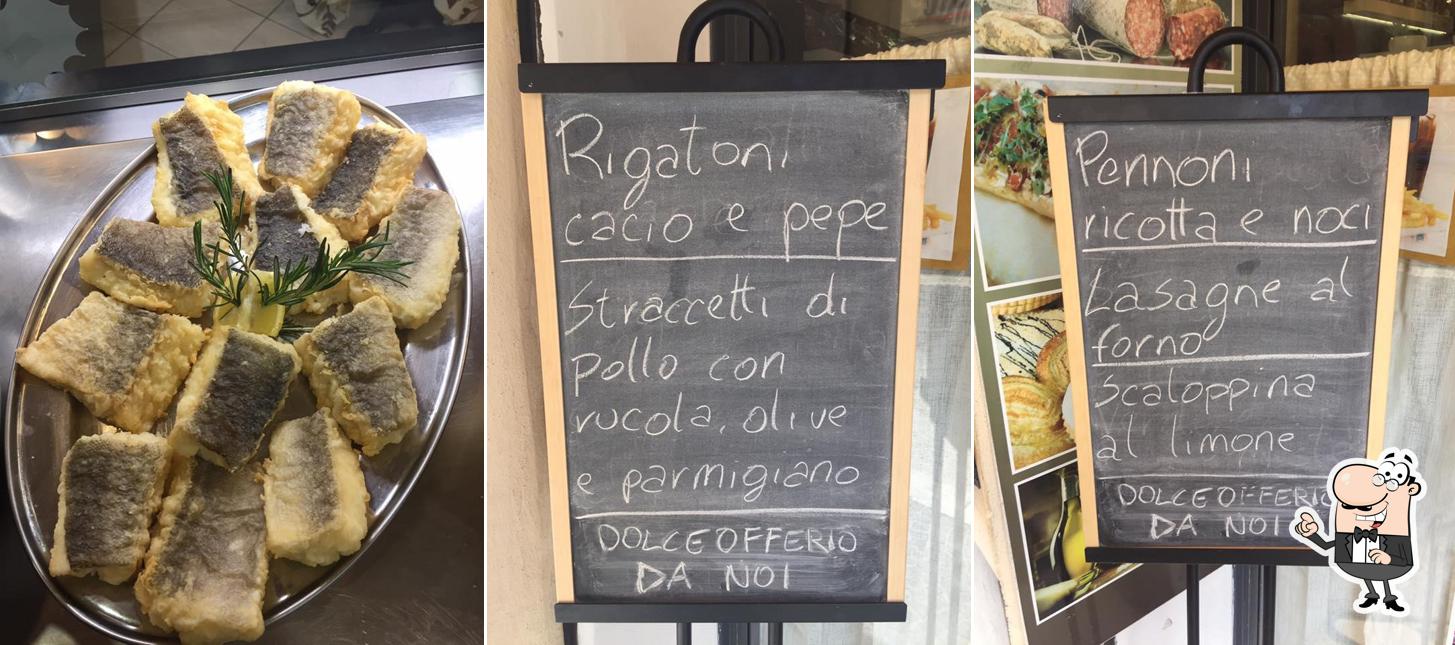 Rigatoni
cacio e pepe
Straccetti di
pollo con
rucola, olive
e parmigiano
DOLCE OFFERTO
DA NOI
Pennoni
ricotta e noci
Lasagne al
forno
Scaloppina
al limone
DOLCE OFFERTO
DA NOI